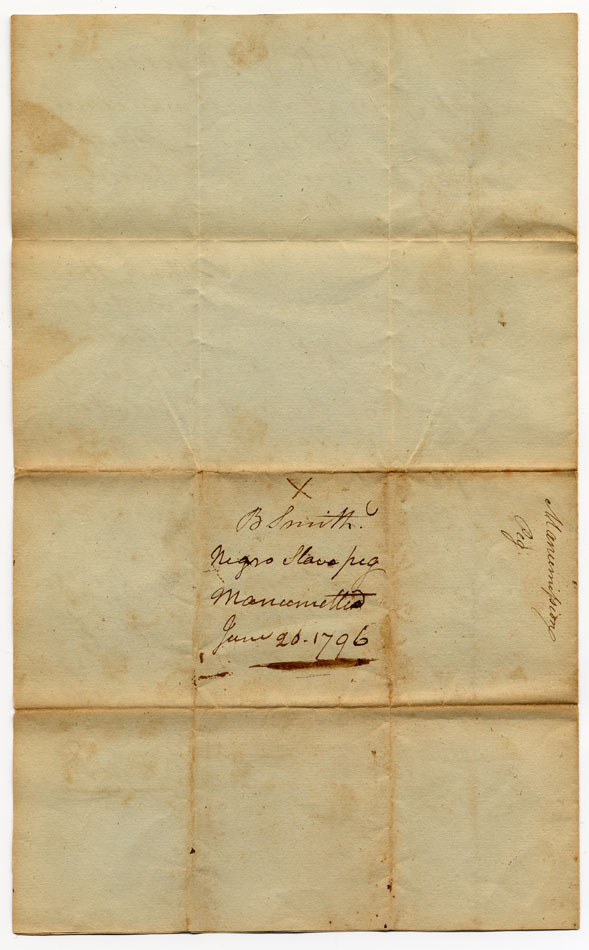 X
B Smith.
Negro Slave peg
Manumetted
June 20. 1796
Manumission
Peg